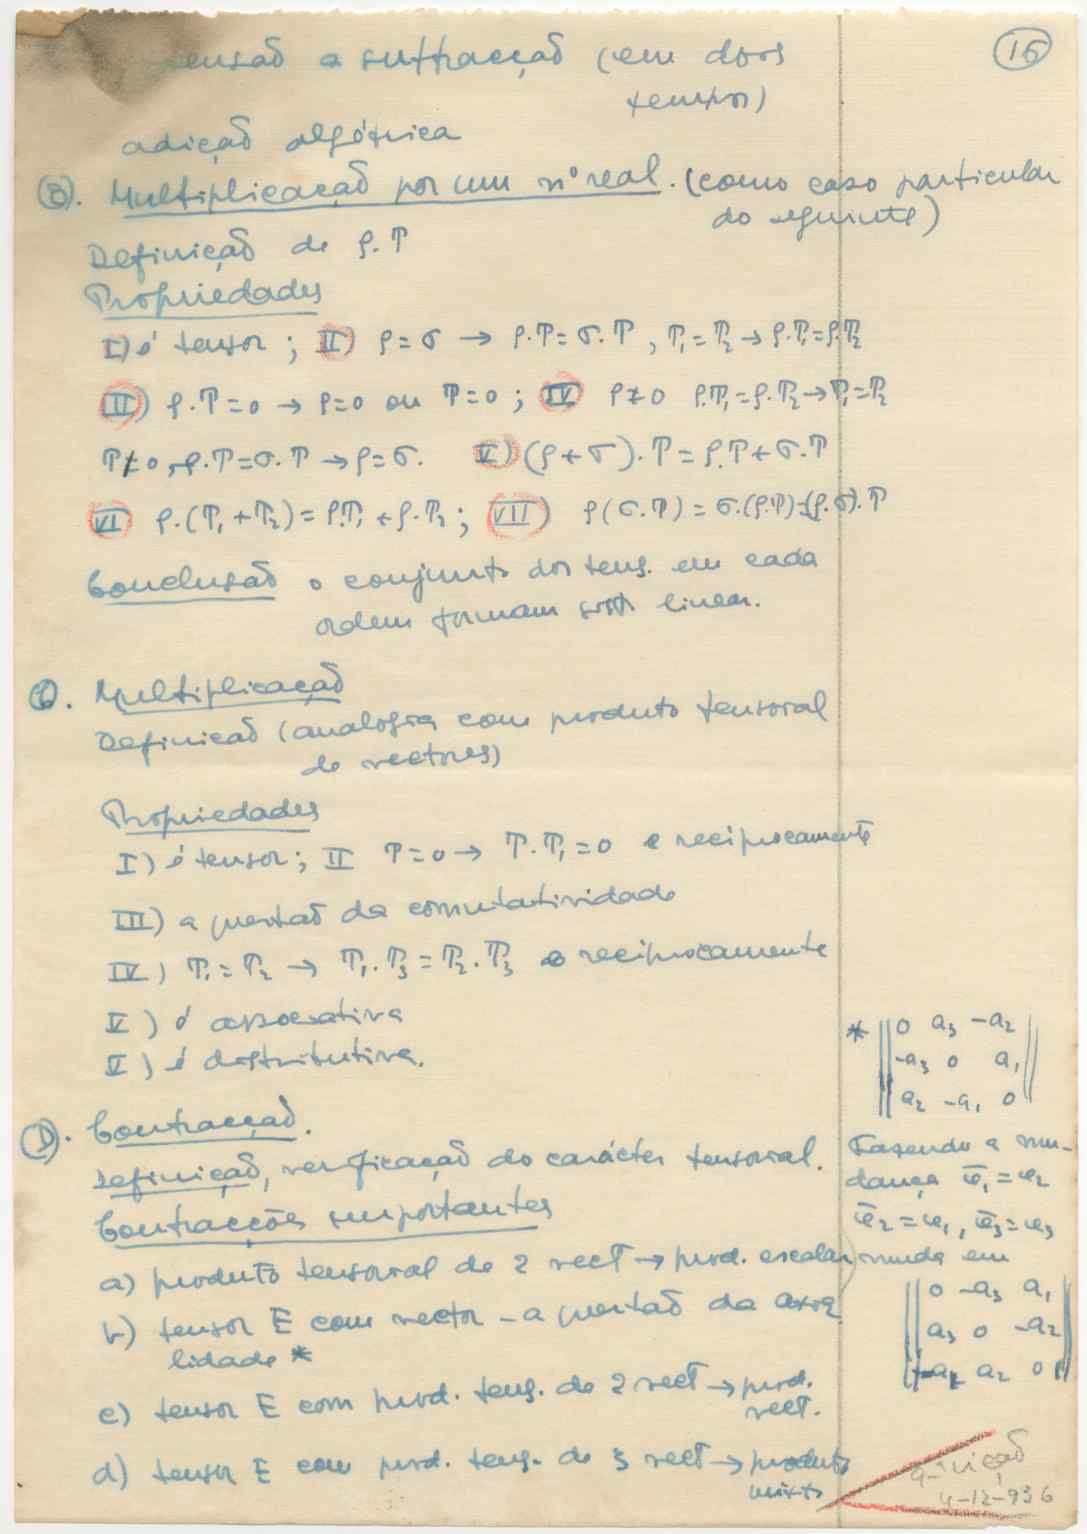 a subtracção (em dois
tempos)
16
adição algébrica
B. Multiplicação por um nº real. (como caso particular
do seguinte)
Definição de ρ.T
Propriedades
I) é tensor; II) ρ=σ → ρ.T=σ.T, T₁=T₂ → ρ.T₁=ρ.T₂
III) ρ.T=0 → ρ=0 ou T=0; IV ρ≠0 ρ.T₁=ρ.T₂→T₁=T₂
T≠0, ρ.T=σ.T → ρ=σ. V) (ρ+σ).T=ρ.T+σ.T
VI ρ.(T₁+T₂)=ρ.T₁+ρ.T₂; VII) ρ(σ.T)=σ.(ρ.T)=(ρ.σ).T
Conclusão o conjunto dos tens. em cada
ordem formam sist linear.
C. Multiplicação
Definição (analogia com produto tensorial
de vectores)
Propriedades
I) é tensor; II T=0 → T.T₁=0 e reciprocamente
III) a questão da comutatividade
IV) T₁=T₂ → T₁.T₃=T₂.T₃ e reciprocamente
V) é associativa
V) é distributiva.
D. Contracção.
Definição, verificação do carácter tensorial.
Contracções importantes
a) produto tensorial de 2 vect → prod. escalar
b) tensor E com vector – a questão da axia
lidade *
c) tensor E com prod. tens. de 2 vect → prod.
vect.
d) tensor E com prod. tens. de 3 vect → produto
misto
* || 0 a₃ -a₂ ||
|| -a₃ 0 a₁ ||
|| a₂ -a₁ 0 ||
Fazendo a mu-
dança ē₁=e₂
ē₂=e₁, ē₃=e₃
muda em
|| 0 -a₃ a₁ ||
|| a₃ 0 -a₂ ||
|| -a₁ a₂ 0 ||
4-12-936